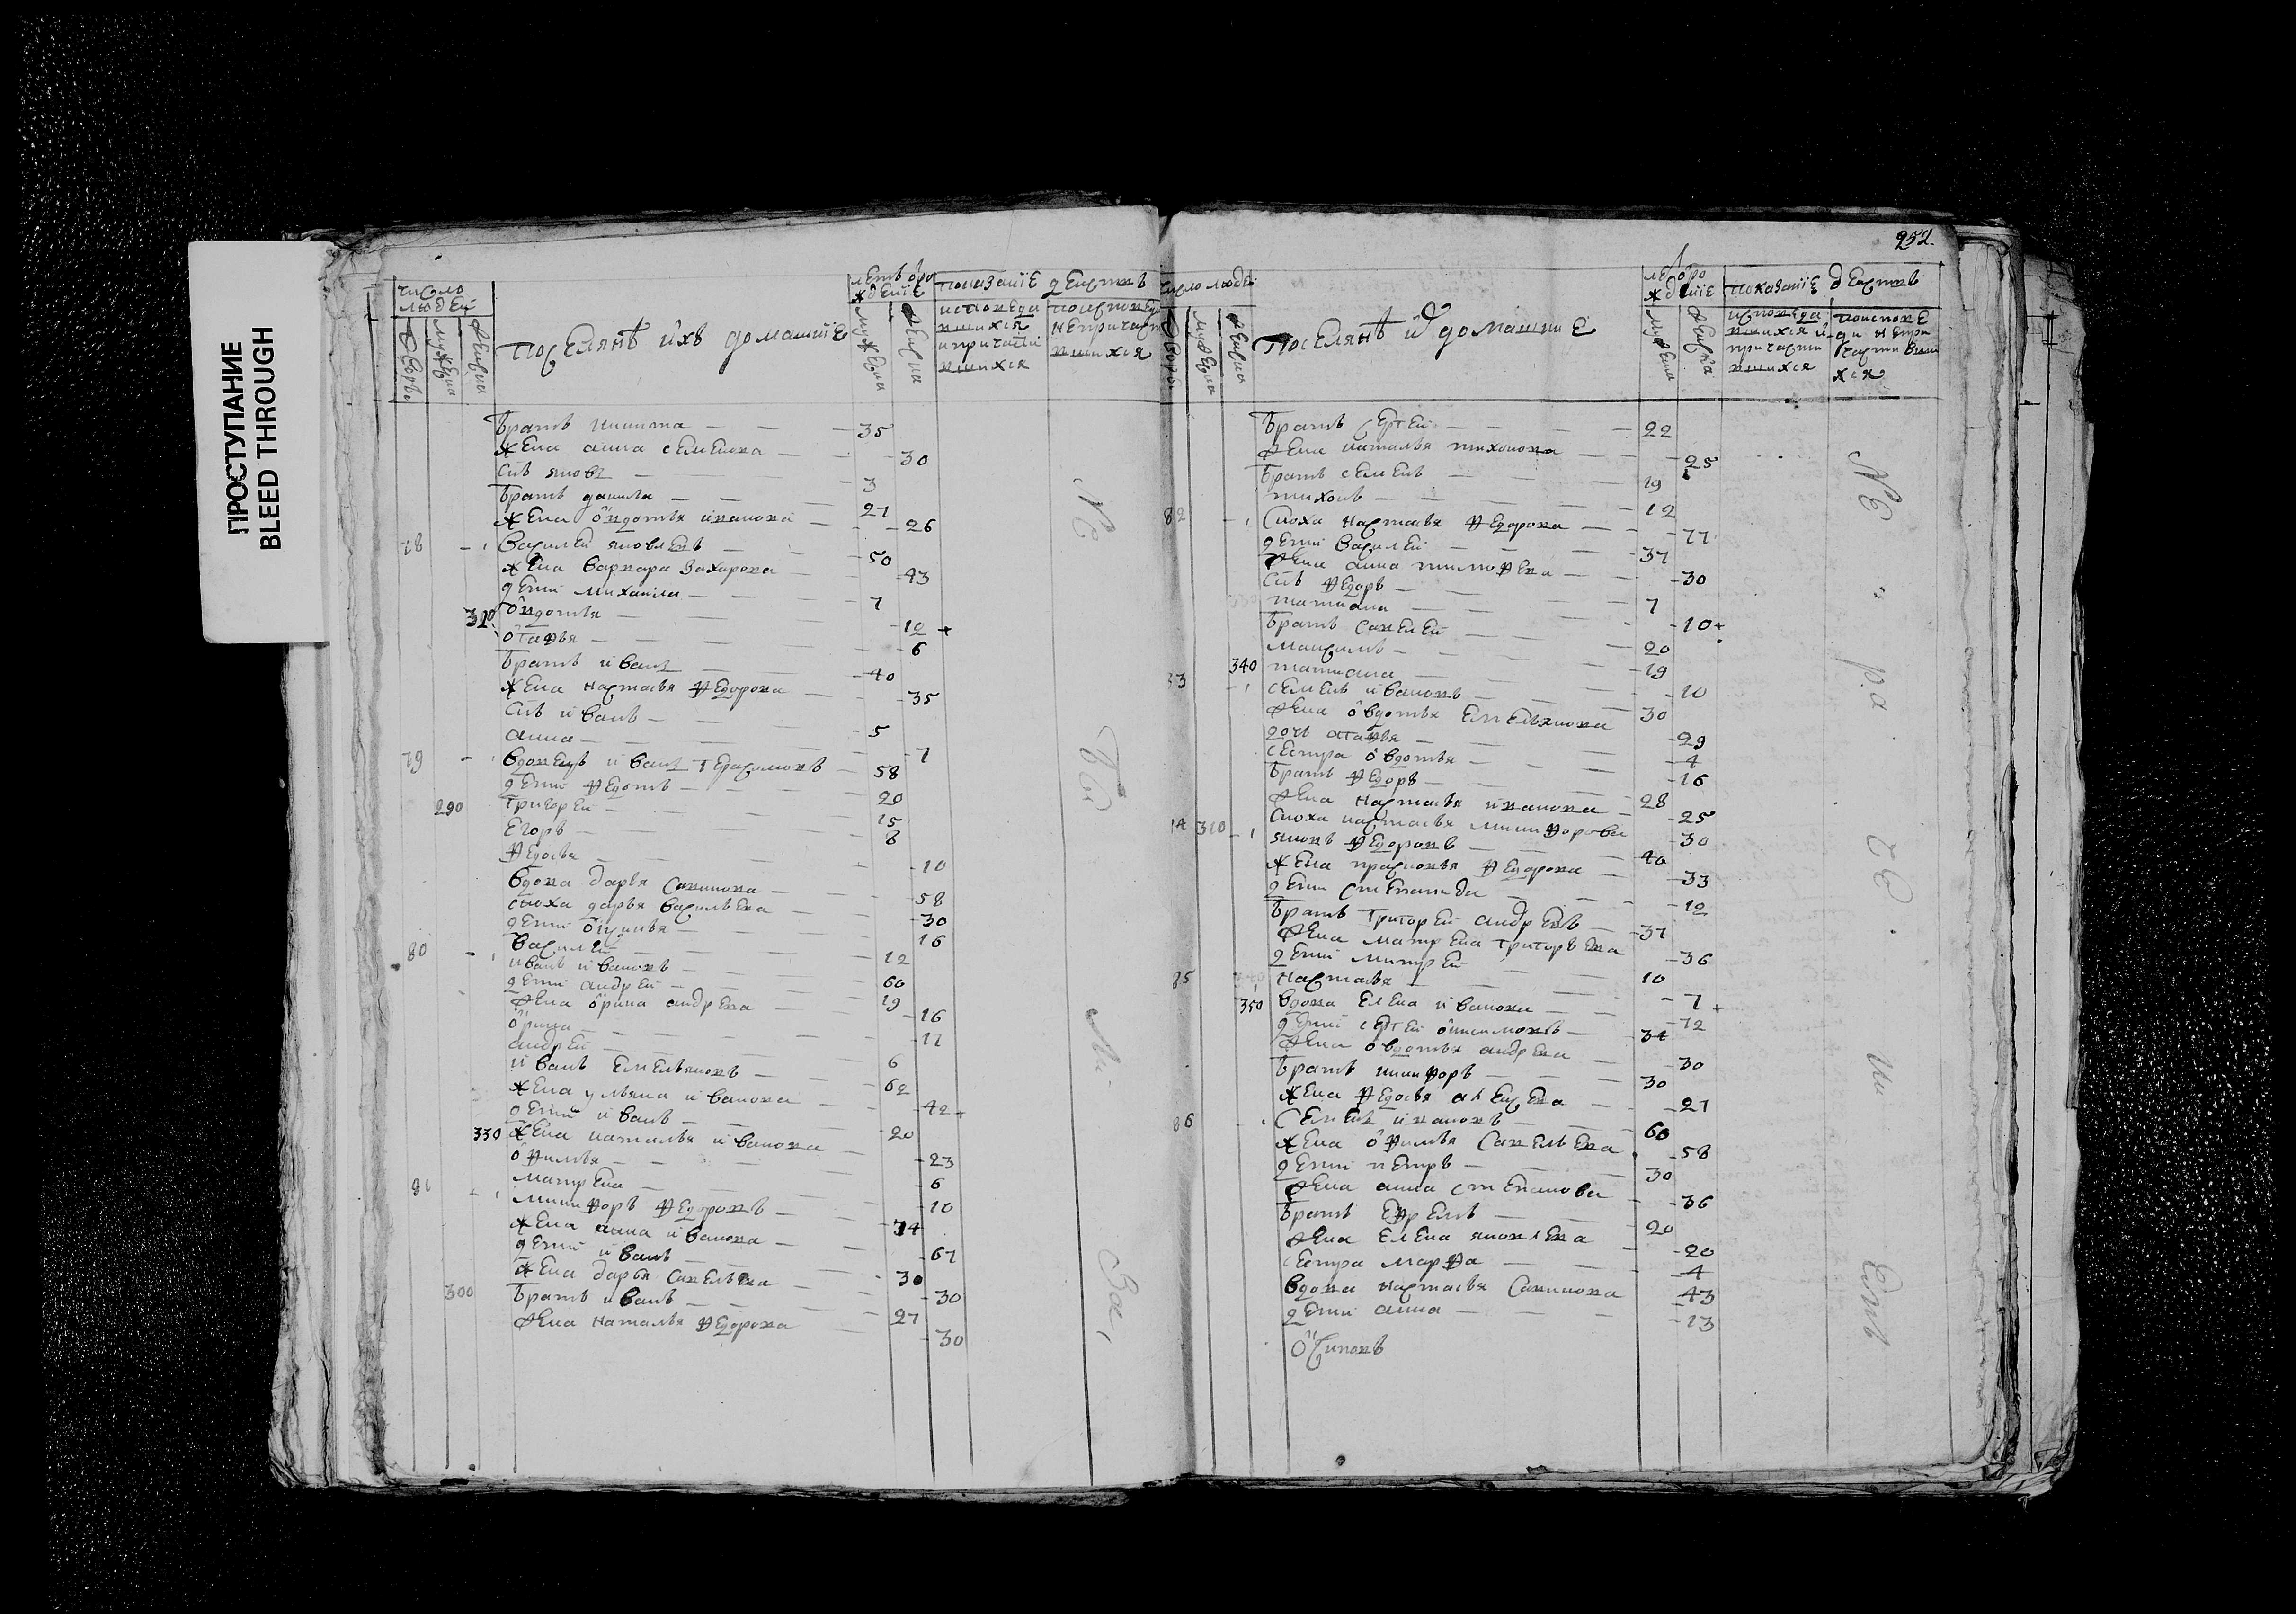 ПРОСТУПАНИЕ
BLEED THROUGH
число людей
дворы
мужеска
женска
поселянѣ ихъ домашніе
лѣтъ ѿ рождения
мужеска
женска
показаніе действъ
братъ никита 35
жена анна семенова 30
снъ яковъ 3
братъ данила 27
жена овдотья иванова 26
78 василей яковлевъ 50
жена варвара захарова 43
дети михаила 7
320 овдотья 12 +
огафья 6
братъ иванъ 40
жена настасья федорова 35
снъ иванъ 5
анна 7
79 вдовецъ иванъ герасимовъ 58
дети федотъ 20
290 григорей 15
егоръ 8
федосья 10
вдова дарья савинова 58
сноха дарья васильева 30
дети 16
80 василей 12
иванъ ивановъ 60
дети андрей 19
жена орина андрева 16
орина 11
андрей 6
иванъ емельяновъ 62
жена ульяна иванова 42
дети иванъ 20
330 жена наталья иванова 23
офимья 6
матрена 10
81 никифоръ федоровъ 74
жена анна иванова 67
дети иванъ 30
жена дарья савельева 30
300 братъ иванъ 27
жена наталья федорова 30
252.
число людей
дворы
мужеска
женска
поселянѣ и домашние
мужеска
женска
показаніе действъ
братъ сергей 22
жена наталья тихонова 25
братъ семенъ 19
тихонъ 12
82 сноха настасья федорова 77
дети василей 37
жена анна тимофева 30
снъ федоръ 7
татиана 10 +
братъ савелей 20
максимъ 19
340 татиана 10
семенъ ивановъ 30
жена овдотья емельянова 29
дочь агафья 4
сестра овдотья 16
братъ федоръ 28
жена настасья иванова 25
сноха настасья никифорова 30
310 яковъ федоровъ 40
жена прасковья федорова 33
дети степанида 12
братъ григорей андревъ 37
жена матрена григорьева 36
дети митрей 10
85 настасья 7 +
350 вдова елена иванова 72
дети сергей онисимовъ 34
жена овдотья андрева 30
братъ никифоръ 30
жена федосья алексева 27
86 семенъ ивановъ 60
жена офимья савельева 58
дети петръ 30
жена анна степанова 36
братъ ефремъ 20
жена елена яковлева 20
сестра марфа 4
вдова настасья савинова 43
дети анна 13
осиповъ